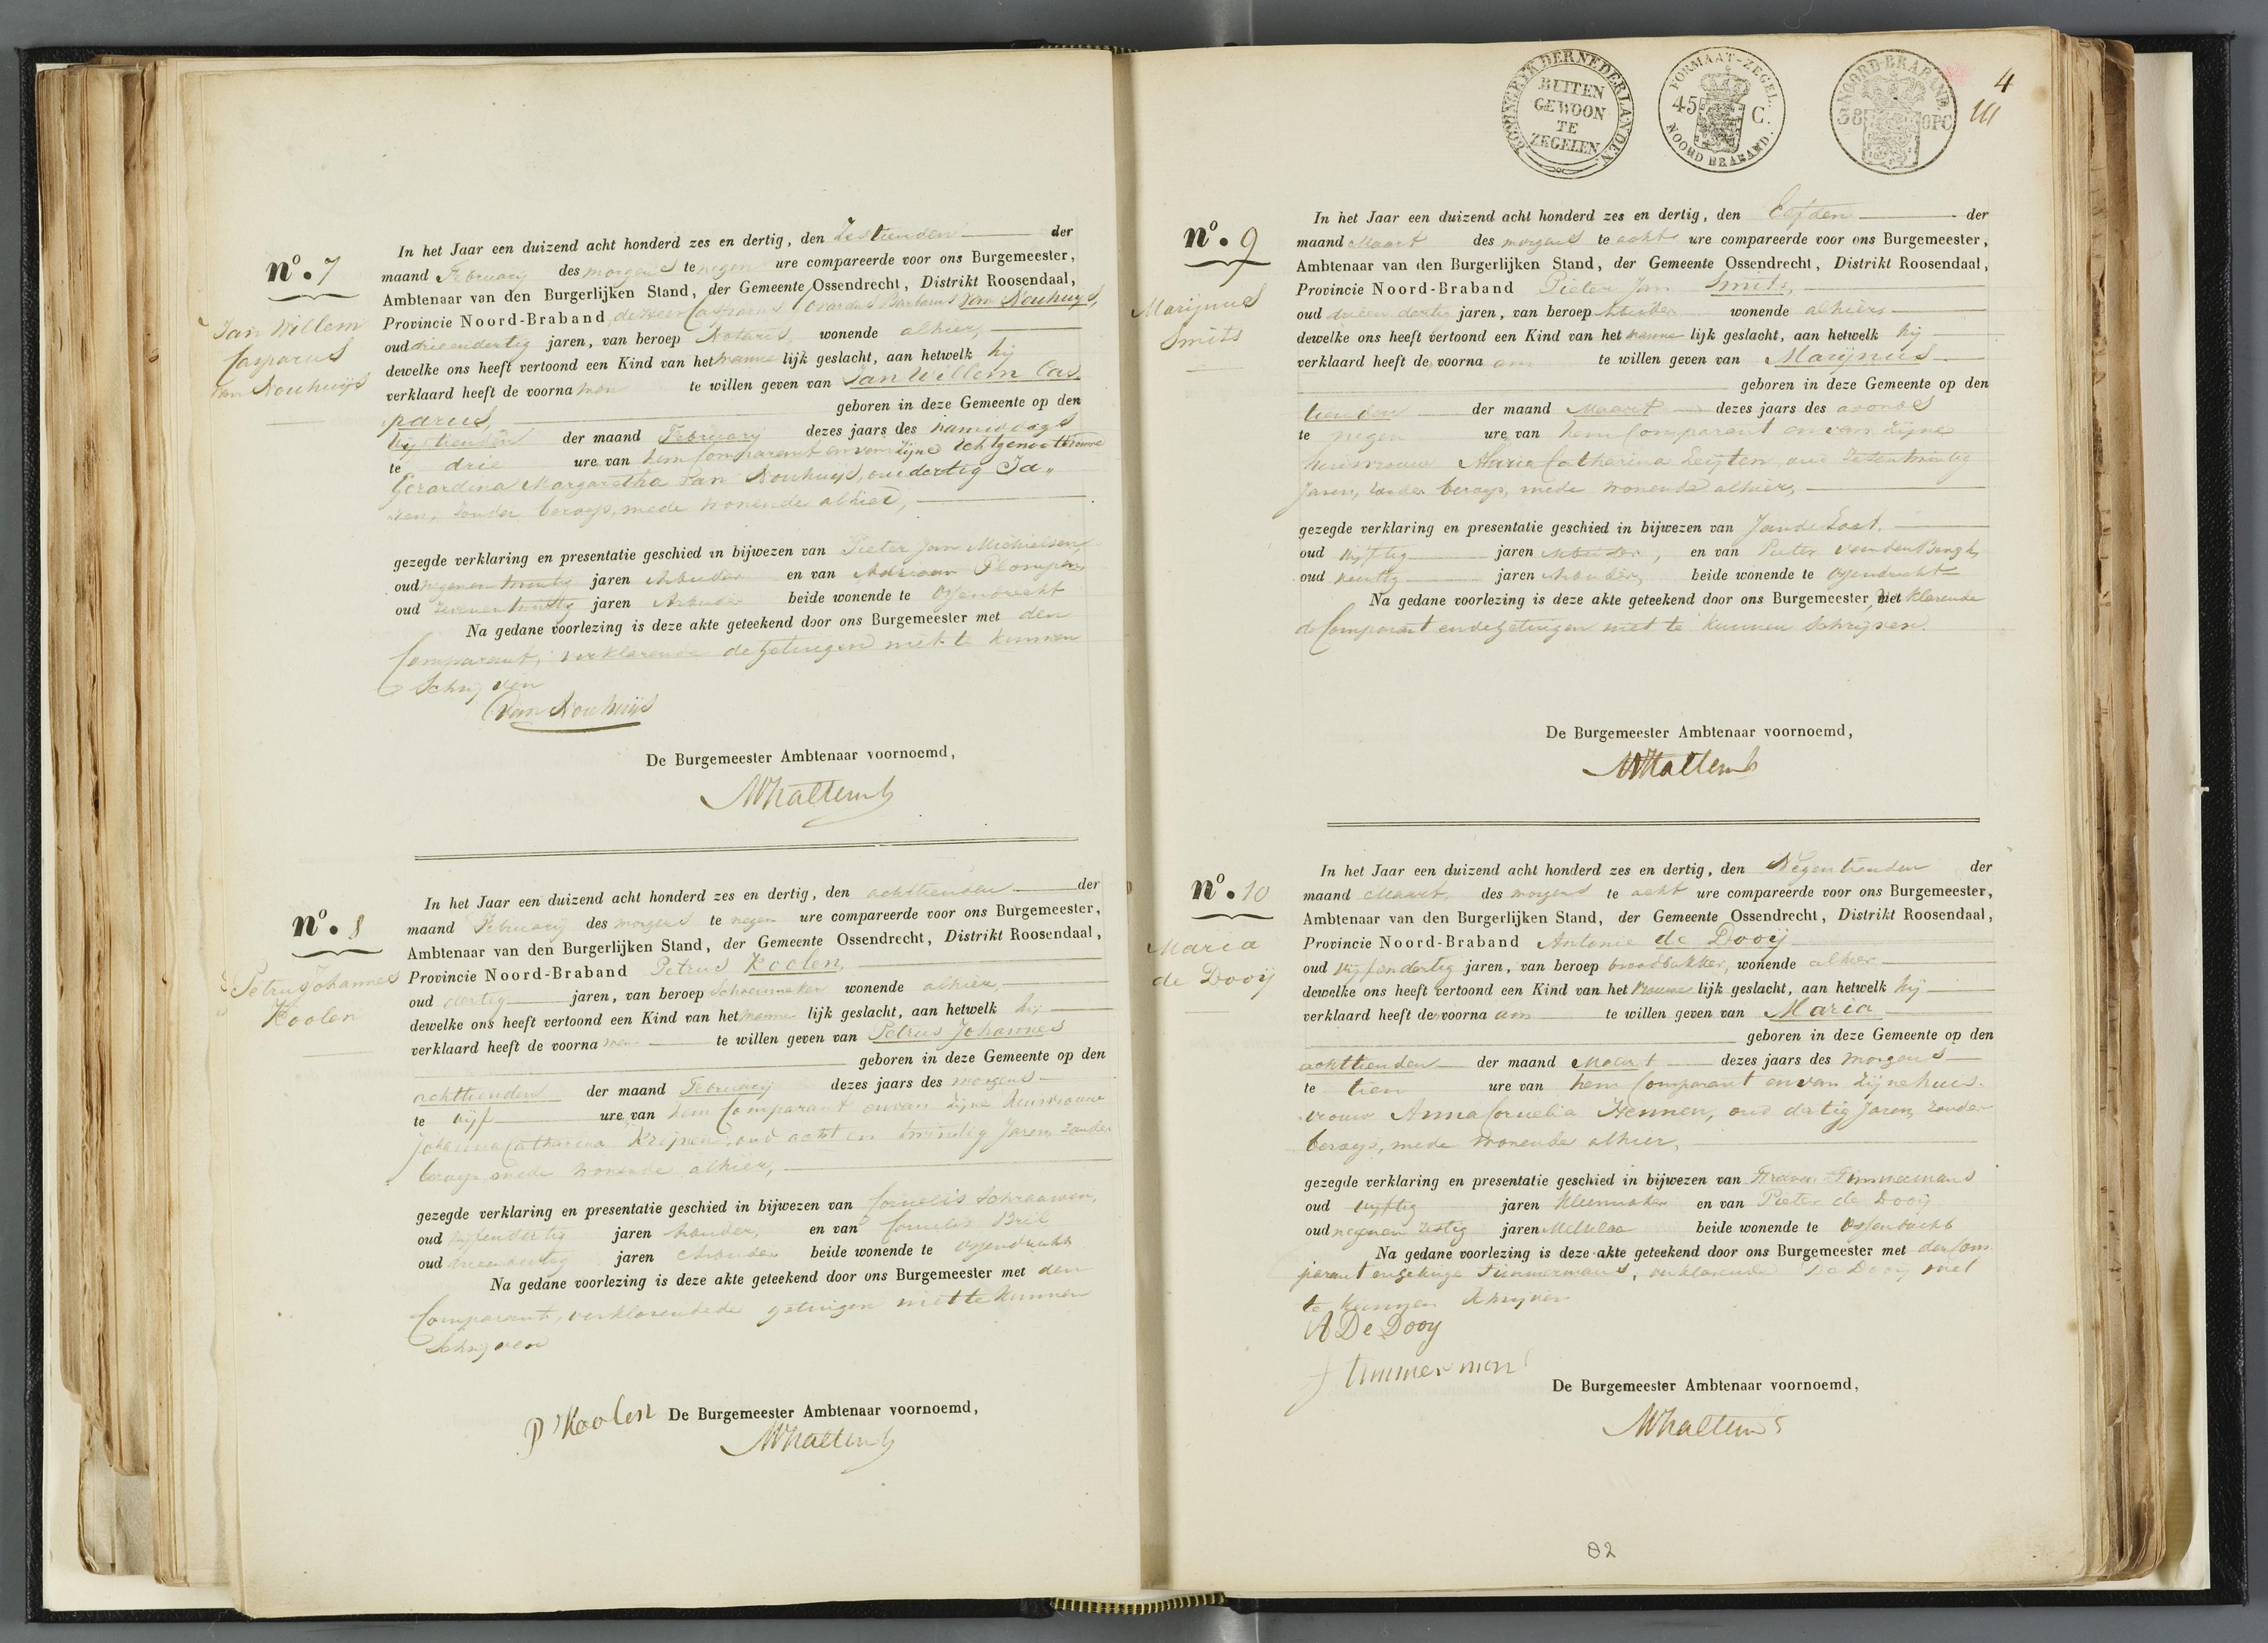 nº. 7
Jan Willem
Casparus
van Nouhuijs
In het Jaar een duizend acht honderd zes en dertig, den Zestienden der
maand Februarij des morgens te negen ure compareerde voor ons Burgemeester,
Ambtenaar van den Burgerlijken Stand, der Gemeente Ossendrecht, Distrikt Roosendaal,
Provincie Noord-Braband, de Heer Casparus Everardus Barbarus van Nouhuijs,
oud drieendertig jaren, van beroep Notaris, wonende alhier,
dewelke ons heeft vertoond een Kind van het manne lijk geslacht, aan hetwelk hij
verklaard heeft de voorna men te willen geven van Jan Willem Cas
parus, geboren in deze Gemeente op den
vijftienden der maand Februarij dezes jaars des namiddags
te drie ure van hem Comparant en van Zijne Echtgenoot
Gerardina Margaretha van Nouhuijs, oud dertig Ja„
ren, zonder beroep, mede wonende alhier,
gezegde verklaring en presentatie geschied in bijwezen van Pieter Jan Michielsen,
oud negenentwintig jaren Arbeider en van Adriaan Plompen,
oud zevenentwintig jaren Arbeider beide wonende te Ossendrecht
Na gedane voorlezing is deze akte geteekend door ons Burgemeester met den
Comparant, verklarende de getuigen niet te kunnen
Schrijven
van Nouhuijs
De Burgemeester Ambtenaar voornoemd,
nº. 8
Petrus Johannes
Koolen
In het Jaar een duizend acht honderd zes en dertig, den achttienden der
maand Februarij des morgens te negen ure compareerde voor ons Burgemeester,
Ambtenaar van den Burgerlijken Stand, der Gemeente Ossendrecht, Distrikt Roosendaal,
Provincie Noord-Braband Petrus Koolen,
oud dertig jaren, van beroep Schoenmaker wonende alhier,
dewelke ons heeft vertoond een Kind van het manne lijk geslacht, aan hetwelk hij
verklaard heeft de voorna men te willen geven van Petrus Johannes
geboren in deze Gemeente op den
achttienden der maand Februarij dezes jaars des morgens
te vijf ure van hem Comparant en van zijne huisvrouw
Johanna Catharina Krijnen, oud acht en twintig Jaren, zonder
beroep, mede wonende alhier,
gezegde verklaring en presentatie geschied in bijwezen van Cornelis Schraauwen,
oud vijfendertig jaren Arbeider, en van Cornelis Bril
oud jaren Arbeider beide wonende te Ossendrecht
Na gedane voorlezing is deze akte geteekend door ons Burgemeester met den
Comparant, verklarende de getuigen niet te kunnen
Schrijven
P Koolen De Burgemeester Ambtenaar voornoemd,
KONINGRYK DER NEDERLANDEN
BUITEN
GEWOON
TE
ZEGELEN
FORMAAT-ZEGEL.
45 C.
NOORD BRABAND.
NOORD-BRABAND.
38 OPC
4
nº. 9
Marijnus
Smits
In het Jaar een duizend acht honderd zes en dertig, den Elfden der
maand Maart des morgens te acht ure compareerde voor ons Burgemeester,
Ambtenaar van den Burgerlijken Stand, der Gemeente Ossendrecht, Distrikt Roosendaal,
Provincie Noord-Braband Pieter Jan Smits,
oud drieen dertig jaren, van beroep Arbeider wonende alhier
dewelke ons heeft vertoond een Kind van het manne lijk geslacht, aan hetwelk hij
verklaard heeft de voorna am te willen geven van Marijnus
geboren in deze Gemeente op den
tienden der maand Maart dezes jaars des avonds
te negen ure van hem Comparant en van zijne
huisvrouw Maria Catharina Leijten, oud zesentwintig
Jaren, zonder beroep, mede wonende alhier,
gezegde verklaring en presentatie geschied in bijwezen van Jan de Laat.
oud vijftig jaren Arbeider, en van Pieter van den Bergh,
oud jaren Arbeider, beide wonende te Ossendrecht
Na gedane voorlezing is deze akte geteekend door ons Burgemeester, met klarende
de Comparant en de getuigen niet te kunnen Schrijven.
De Burgemeester Ambtenaar voornoemd,
nº. 10
Maria
de Dooij
In het Jaar een duizend acht honderd zes en dertig, den Negentienden der
maand Maart, des morgens te acht ure compareerde voor ons Burgemeester,
Ambtenaar van den Burgerlijken Stand, der Gemeente Ossendrecht, Distrikt Roosendaal,
Provincie Noord-Braband Antonie de Dooij
oud vijfendertig jaren, van beroep broodbakker, wonende alhier
dewelke ons heeft vertoond een Kind van het vrouwe lijk geslacht, aan hetwelk hij
verklaard heeft de voorna am te willen geven van Maria
geboren in deze Gemeente op den
achttienden der maand Maart dezes jaars des morgens
te tien ure van hem Comparant en van Zijne huis
vrouw Anna Cornelia Hennen, oud dertig Jaren, zonder
beroep, mede wonende alhier,
gezegde verklaring en presentatie geschied in bijwezen van Timmermans
oud vijftig jaren Kleermaker en van Pieter de Dooij
oud negenen zestig jaren Metselaar beide wonende te Ossendrecht
Na gedane voorlezing is deze akte geteekend door ons Burgemeester met den Com
parant en getuige Timmermans, verklarende De Dooij niet
te kunnen Schrijven
A De Dooy
J Timmermans
De Burgemeester Ambtenaar voornoemd,
82